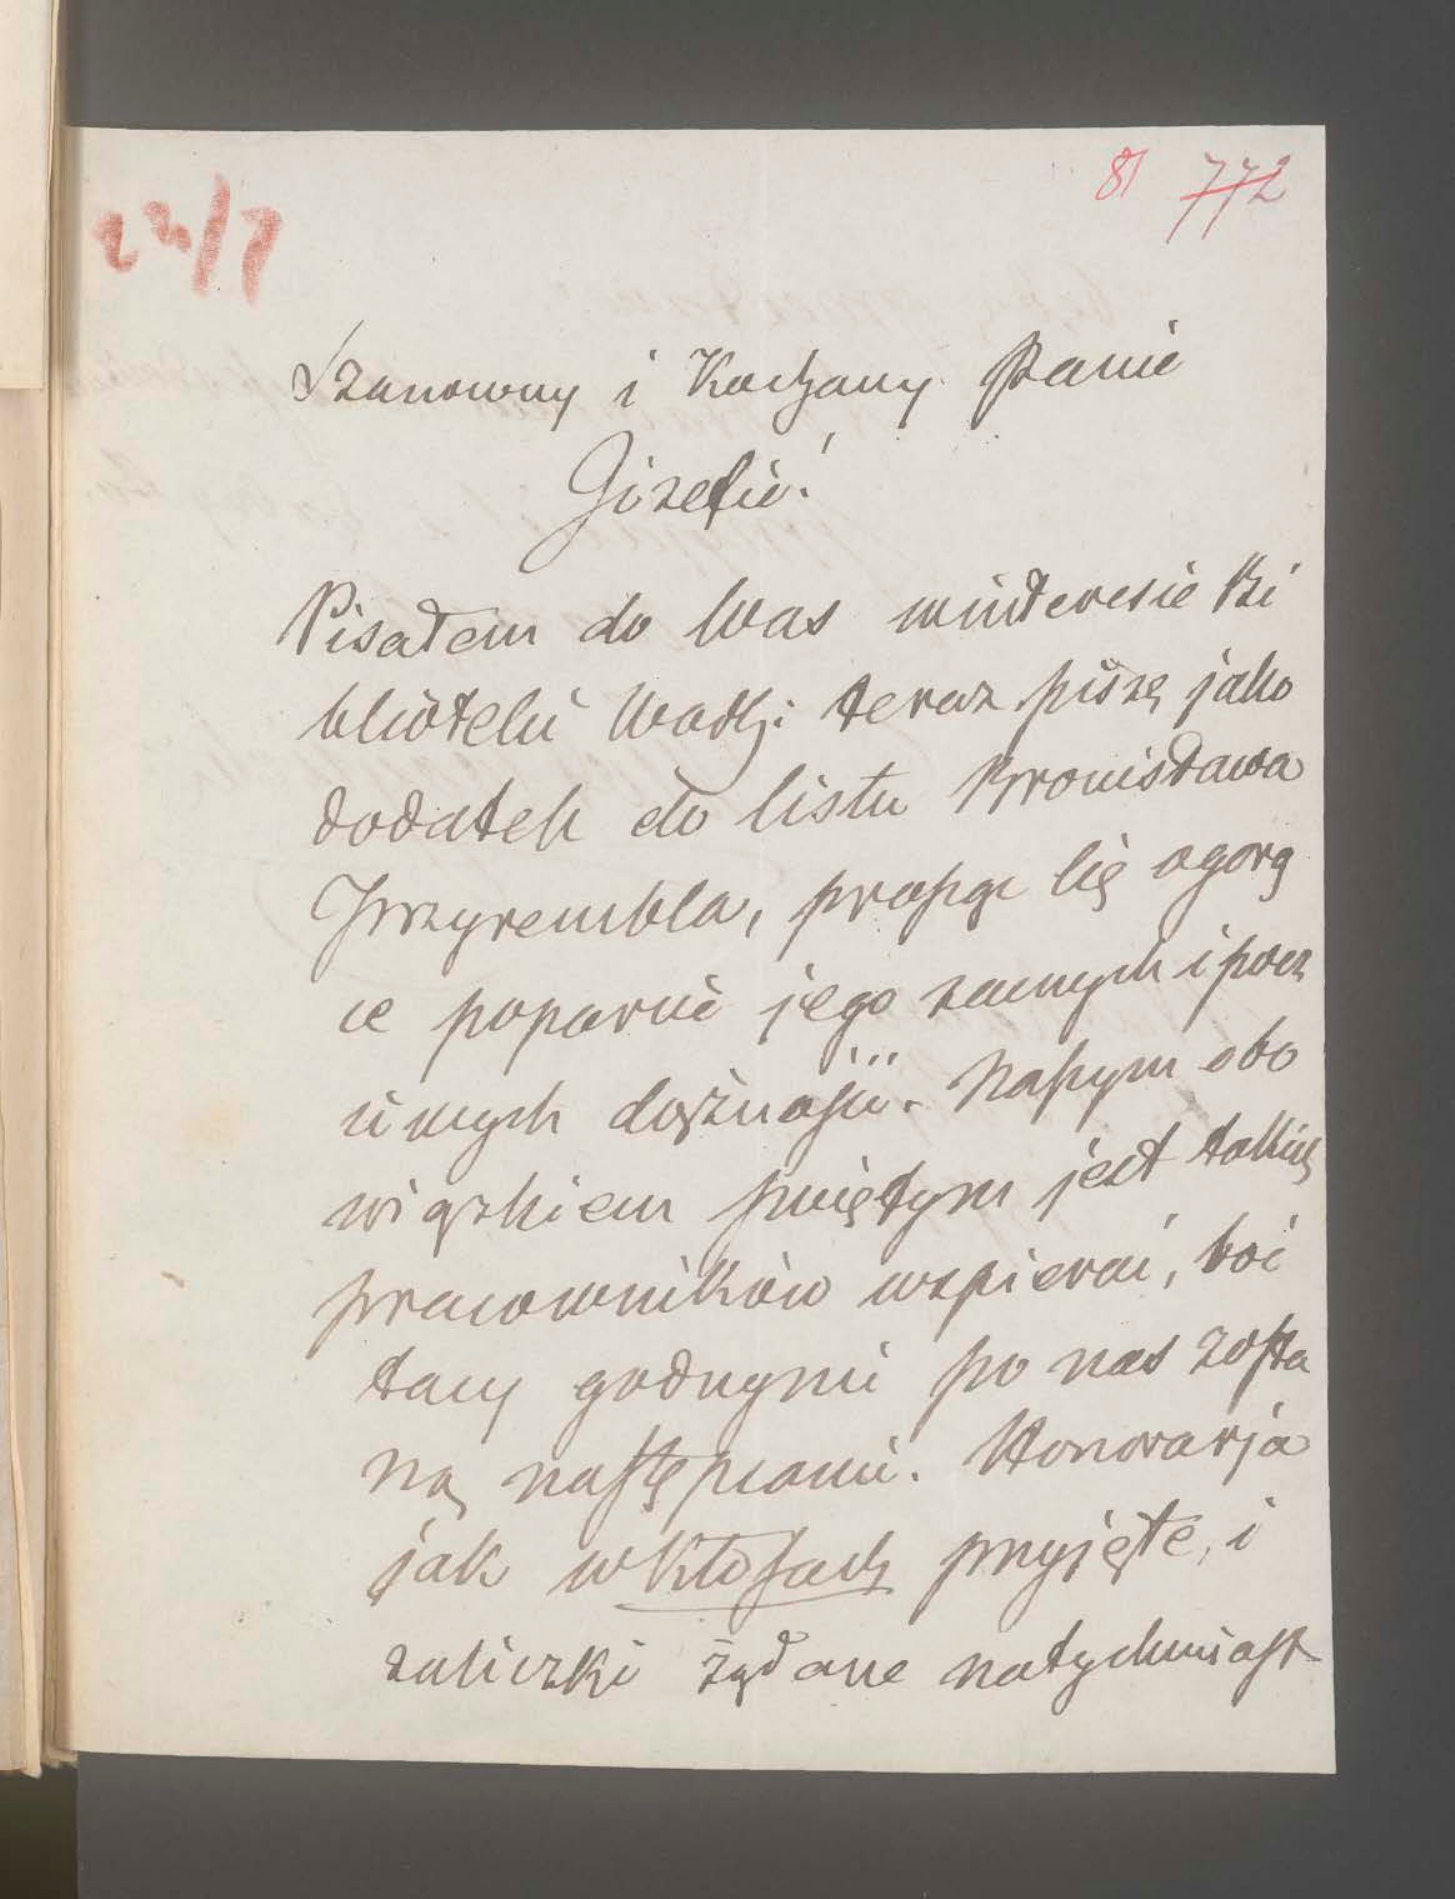 81 772
23/7
Szanowny i Kochany Panie
Józefie!
Pisałem do Was w interesie Bi
blioteki teraz piszę jako
dodatek do listu Bronisława
Grzyrembla, proszę się o gorą
ce poparcie jego zacnych i pocz
ciwych dążności. Naszym obo
wiązkiem świętym jest takich
pracowników wspierać, boć
tacy godnymi po nas zosta
ną następcami. Honorarja
jak w Kłosach przyjęte, i
zaliczki żądane natychmiast